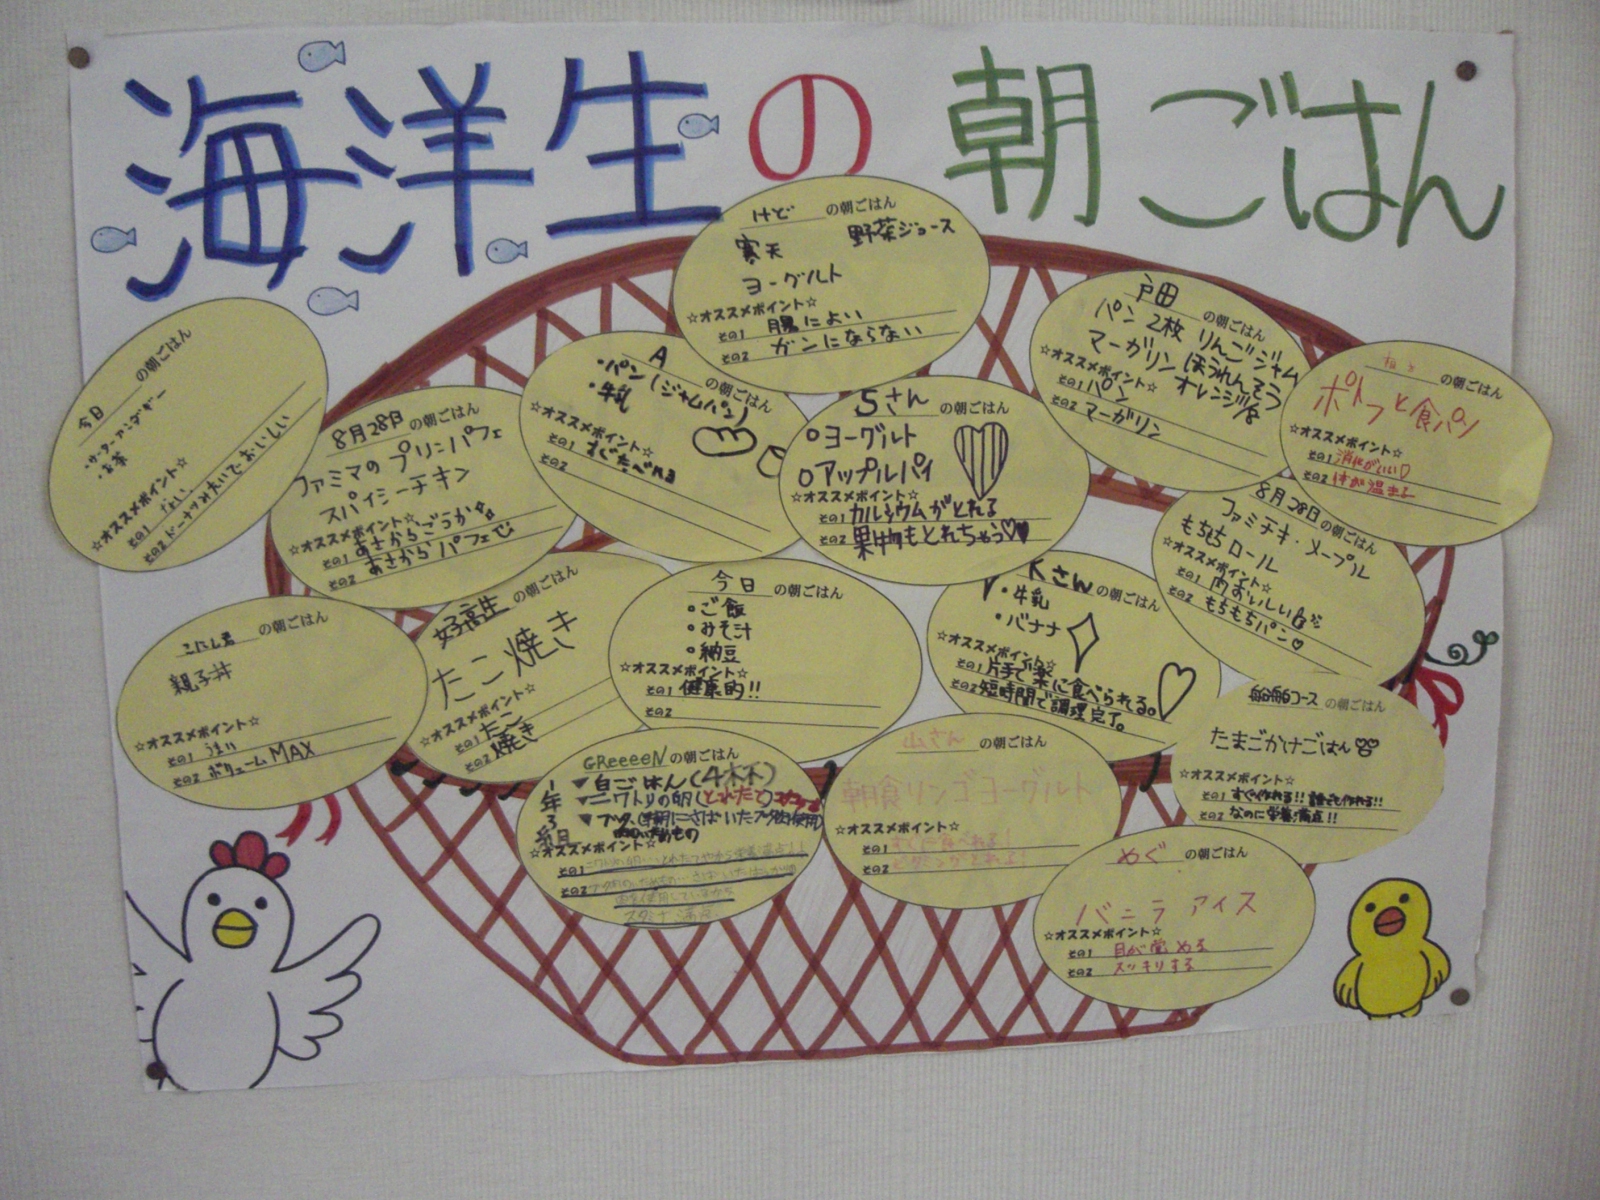 海洋生の朝ごはん
けど の朝ごはん
寒天 野菜ジュース
ヨーグルト
☆オススメポイント☆
その1 腸によい
その2 ガンにならない
戸田 の朝ごはん
パン2枚 りんごジャム
マーガリン ほうれんそう
オレンジ
☆オススメポイント☆
その1 パン
その2 マーガリン
の朝ごはん
ポトフと食パン
☆オススメポイント☆
その1 消化がいい♡
その2 体が温まる
今日 の朝ごはん
・サーターアンダギー
・お茶
☆オススメポイント☆
その1 ない
その2 ドーナツみたいでおいしい
8月28日 の朝ごはん
ファミマのプリンパフェ
スパイシーチキン
☆オススメポイント☆
その1 あさからごうか
その2 あさからパフェ
A の朝ごはん
・パン(ジャムパン)
・牛乳
☆オススメポイント☆
その1 すぐたべれる
その2
Sさん の朝ごはん
○ヨーグルト
○アップルパイ
☆オススメポイント☆
その1 カルシウムがとれる
その2 果物もとれちゃう♡♥
8月28日 の朝ごはん
ファミチキ・メープル
もちもちロール
☆オススメポイント☆
その1 肉おいしい
その2 もちもちパン♡
こにし君 の朝ごはん
親子丼
☆オススメポイント☆
その1 うまい
その2 ボリュームMAX
好高生 の朝ごはん
たこ焼き
☆オススメポイント☆
その1 たこ
焼き
今日 の朝ごはん
○ご飯
○みそ汁
○納豆
☆オススメポイント☆
その1 健康的!!
その2
Kさん の朝ごはん
・牛乳
・バナナ
☆オススメポイント☆
その1 片手で楽に食べられる。
その2 短時間で調理完了。
船舶コース の朝ごはん
たまごかけごはん
☆オススメポイント☆
その1 すぐ作れる!! 誰でも作れる!!
その2 なのに栄養満点!!
GReeeeN の朝ごはん
1年3組
▼白ごはん(4杯)
▼ニワトリの卵(とれたて)
▼ブタ(早朝にさばいたブタ肉使用)
☆オススメポイント☆
その1
その2
スタミナ満点
山さん の朝ごはん
朝食リンゴヨーグルト
☆オススメポイント☆
その1 すぐに食べれる!
その2 ビタミンがとれる!
めぐ の朝ごはん
バニラアイス
☆オススメポイント☆
その1 目が覚める
その2 スッキリする